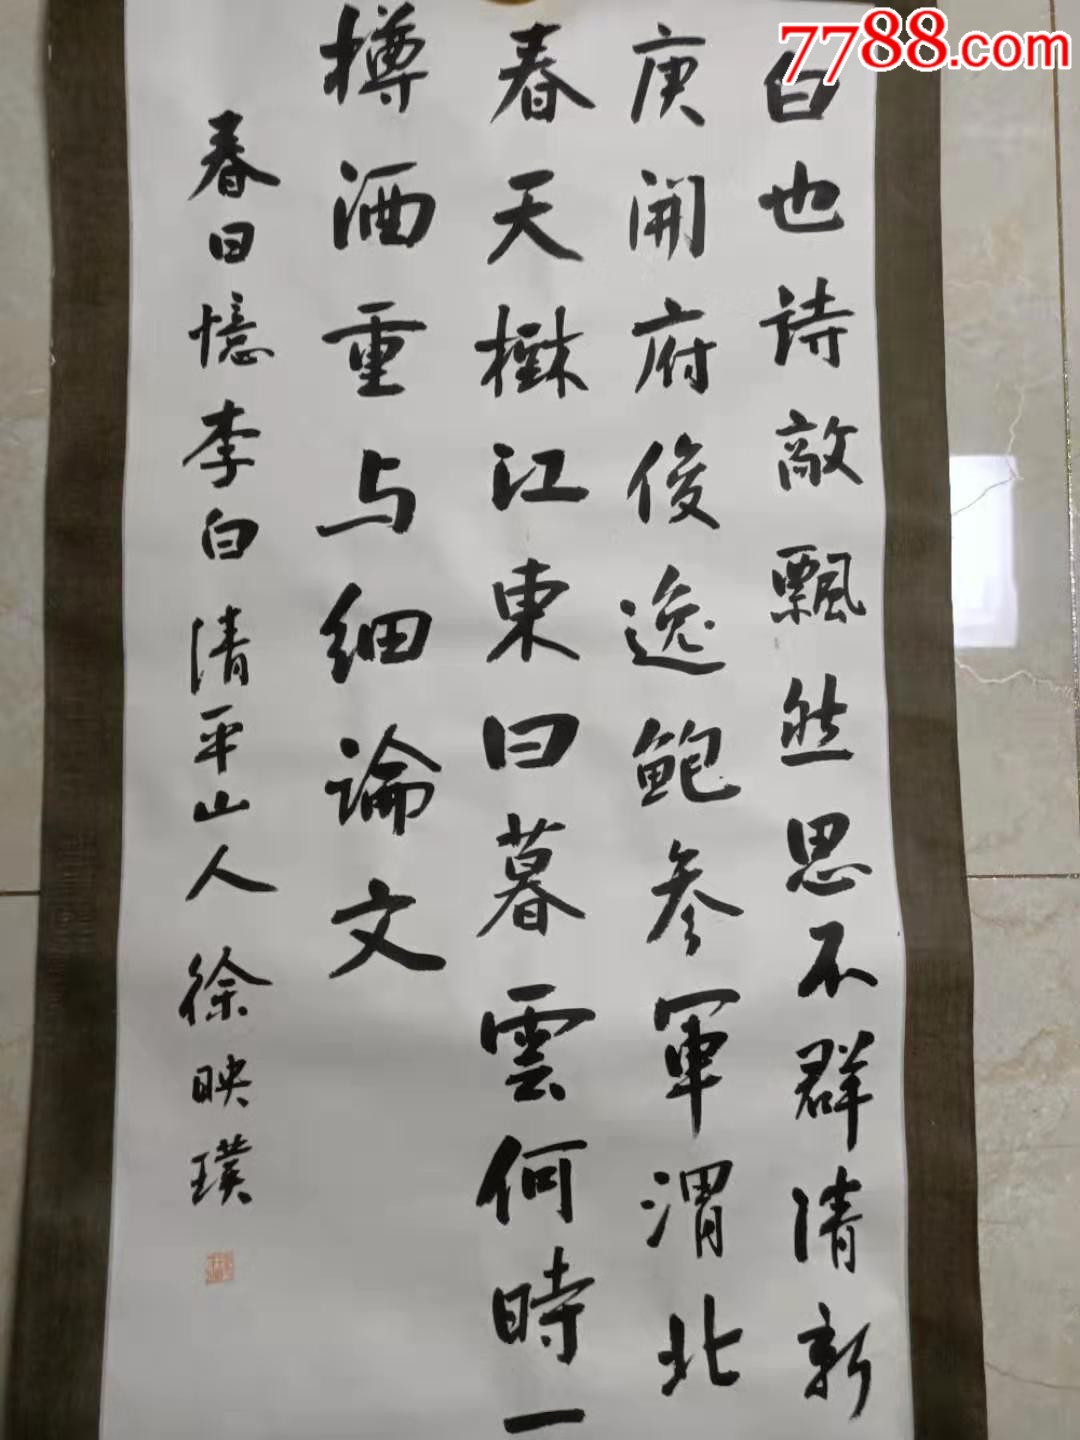 7788.com
白也诗敵飄然思不群清新
庾開府俊逸鲍参軍渭北
春天樹江東日暮雲何時一
樽酒重与细論文
春日憶李白清平山人徐映璞